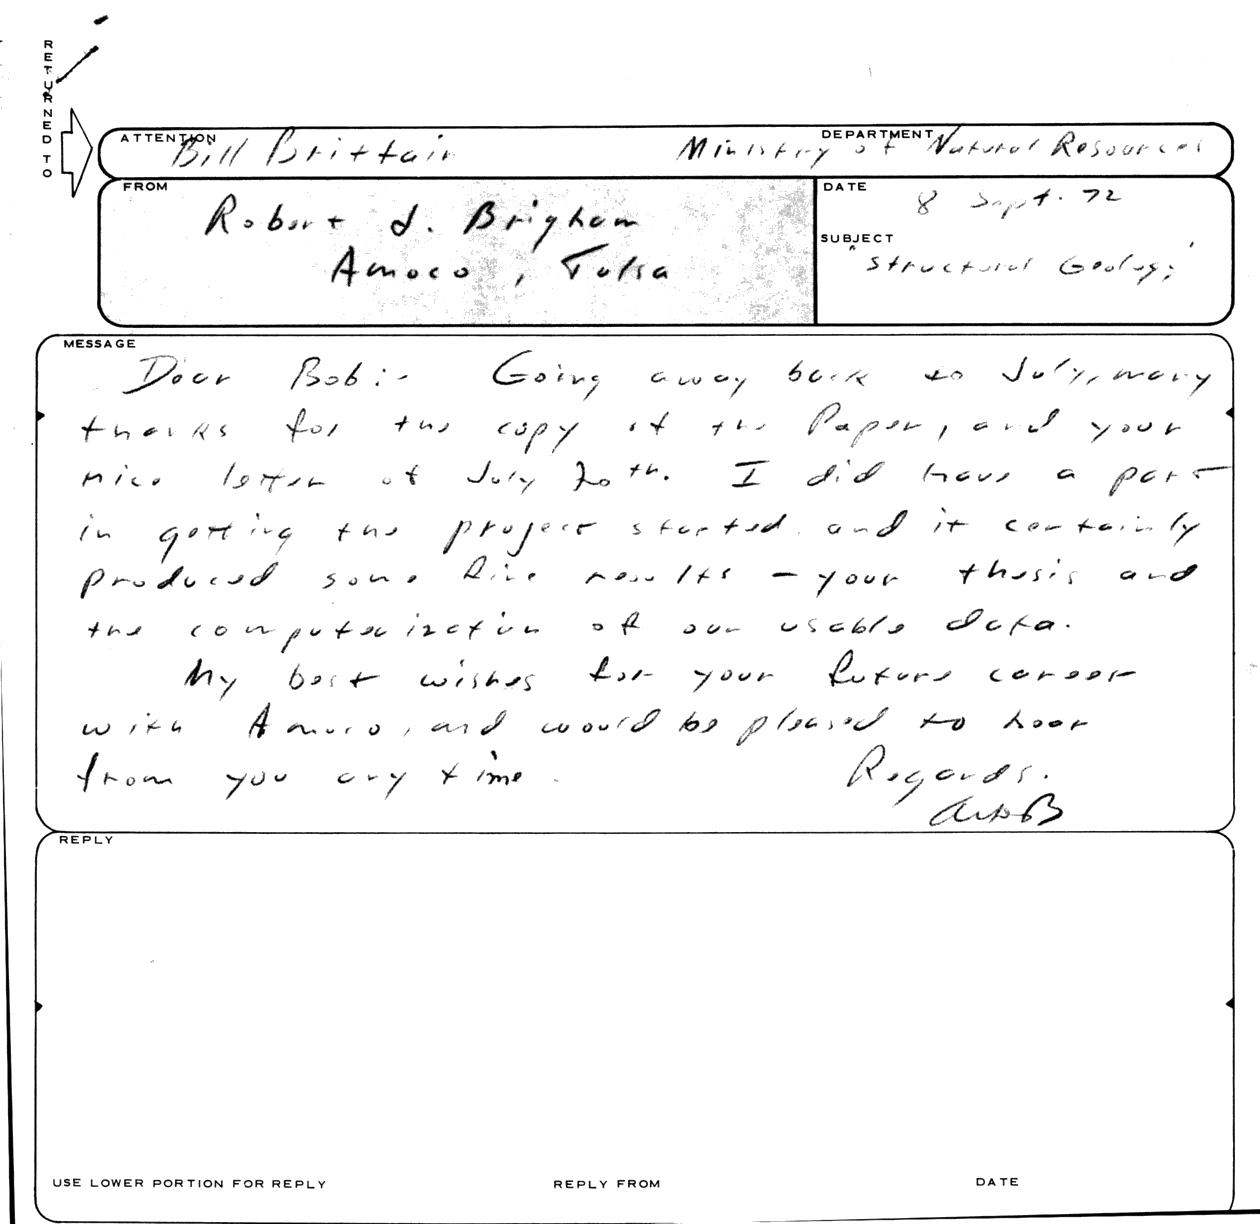 RETURNED TO
ATTENTION Bill Brittain DEPARTMENT Ministry of Natural Resources
FROM Robert J. Brigham
Amoco, Tulsa
DATE 8 Sept. 72
SUBJECT
"Structural Geology
MESSAGE
Dear Bob:- Going away back to July, many
thanks for the copy of the Paper, and your
nice letter of July 20th. I did have a part
in getting the project started and it certainly
produced some fine results - your thesis and
the computerization of our usable data.
My best wishes for your future career
with Amoco, and would be pleased to hear
from you any time. Regards.
REPLY
USE LOWER PORTION FOR REPLY REPLY FROM DATE